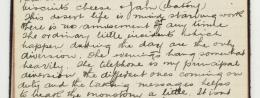 biscuits cheese & jam (eaton)
This desert life is boring starting work
there is no amusement of any kind
The ordinary little incidents which
happen during the day are the only
diversion. The evenings hang somewhat
heavily. The telephone is my principal
diversion the different ones coming on
duty and the talking messages helps
to break the monotony a little. It is not